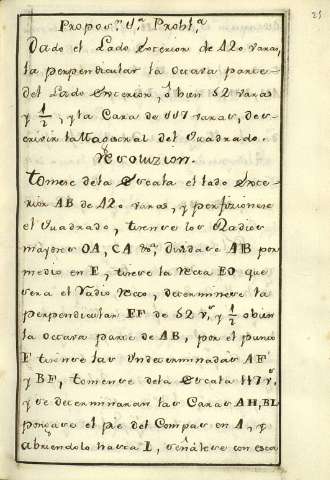 25
Propos.n V.a Probl.a
Dado el Lado Exterior de 420 varas,
la perpendicular la octava parte
del Lado Exterior, ô bien 52 varas
y 1/2, y la Cara de varas, des-
crivir la Magistral del Quadrado.
Resoluzion.
Tomese dela Escala el lado Exte-
rior AB de 420 varas, y perfizionese
el Quadrado, tirense los Radios
mayores OA, CA &a, dividase AB por
medio en E, tirese la Recta EO que
sera el Radio Recto, determinese la
perpendicular EF de 52 v.s y 1/2 o bien
la octava parte de AB, por el punto
F tirense las Yndeterminadas AF
y BF, tomense dela Escala 117 v.s
y se determinaran las Caras AH, BL
pongase el pie del Compas en A, y
abriendolo hasta L, señalese con esta